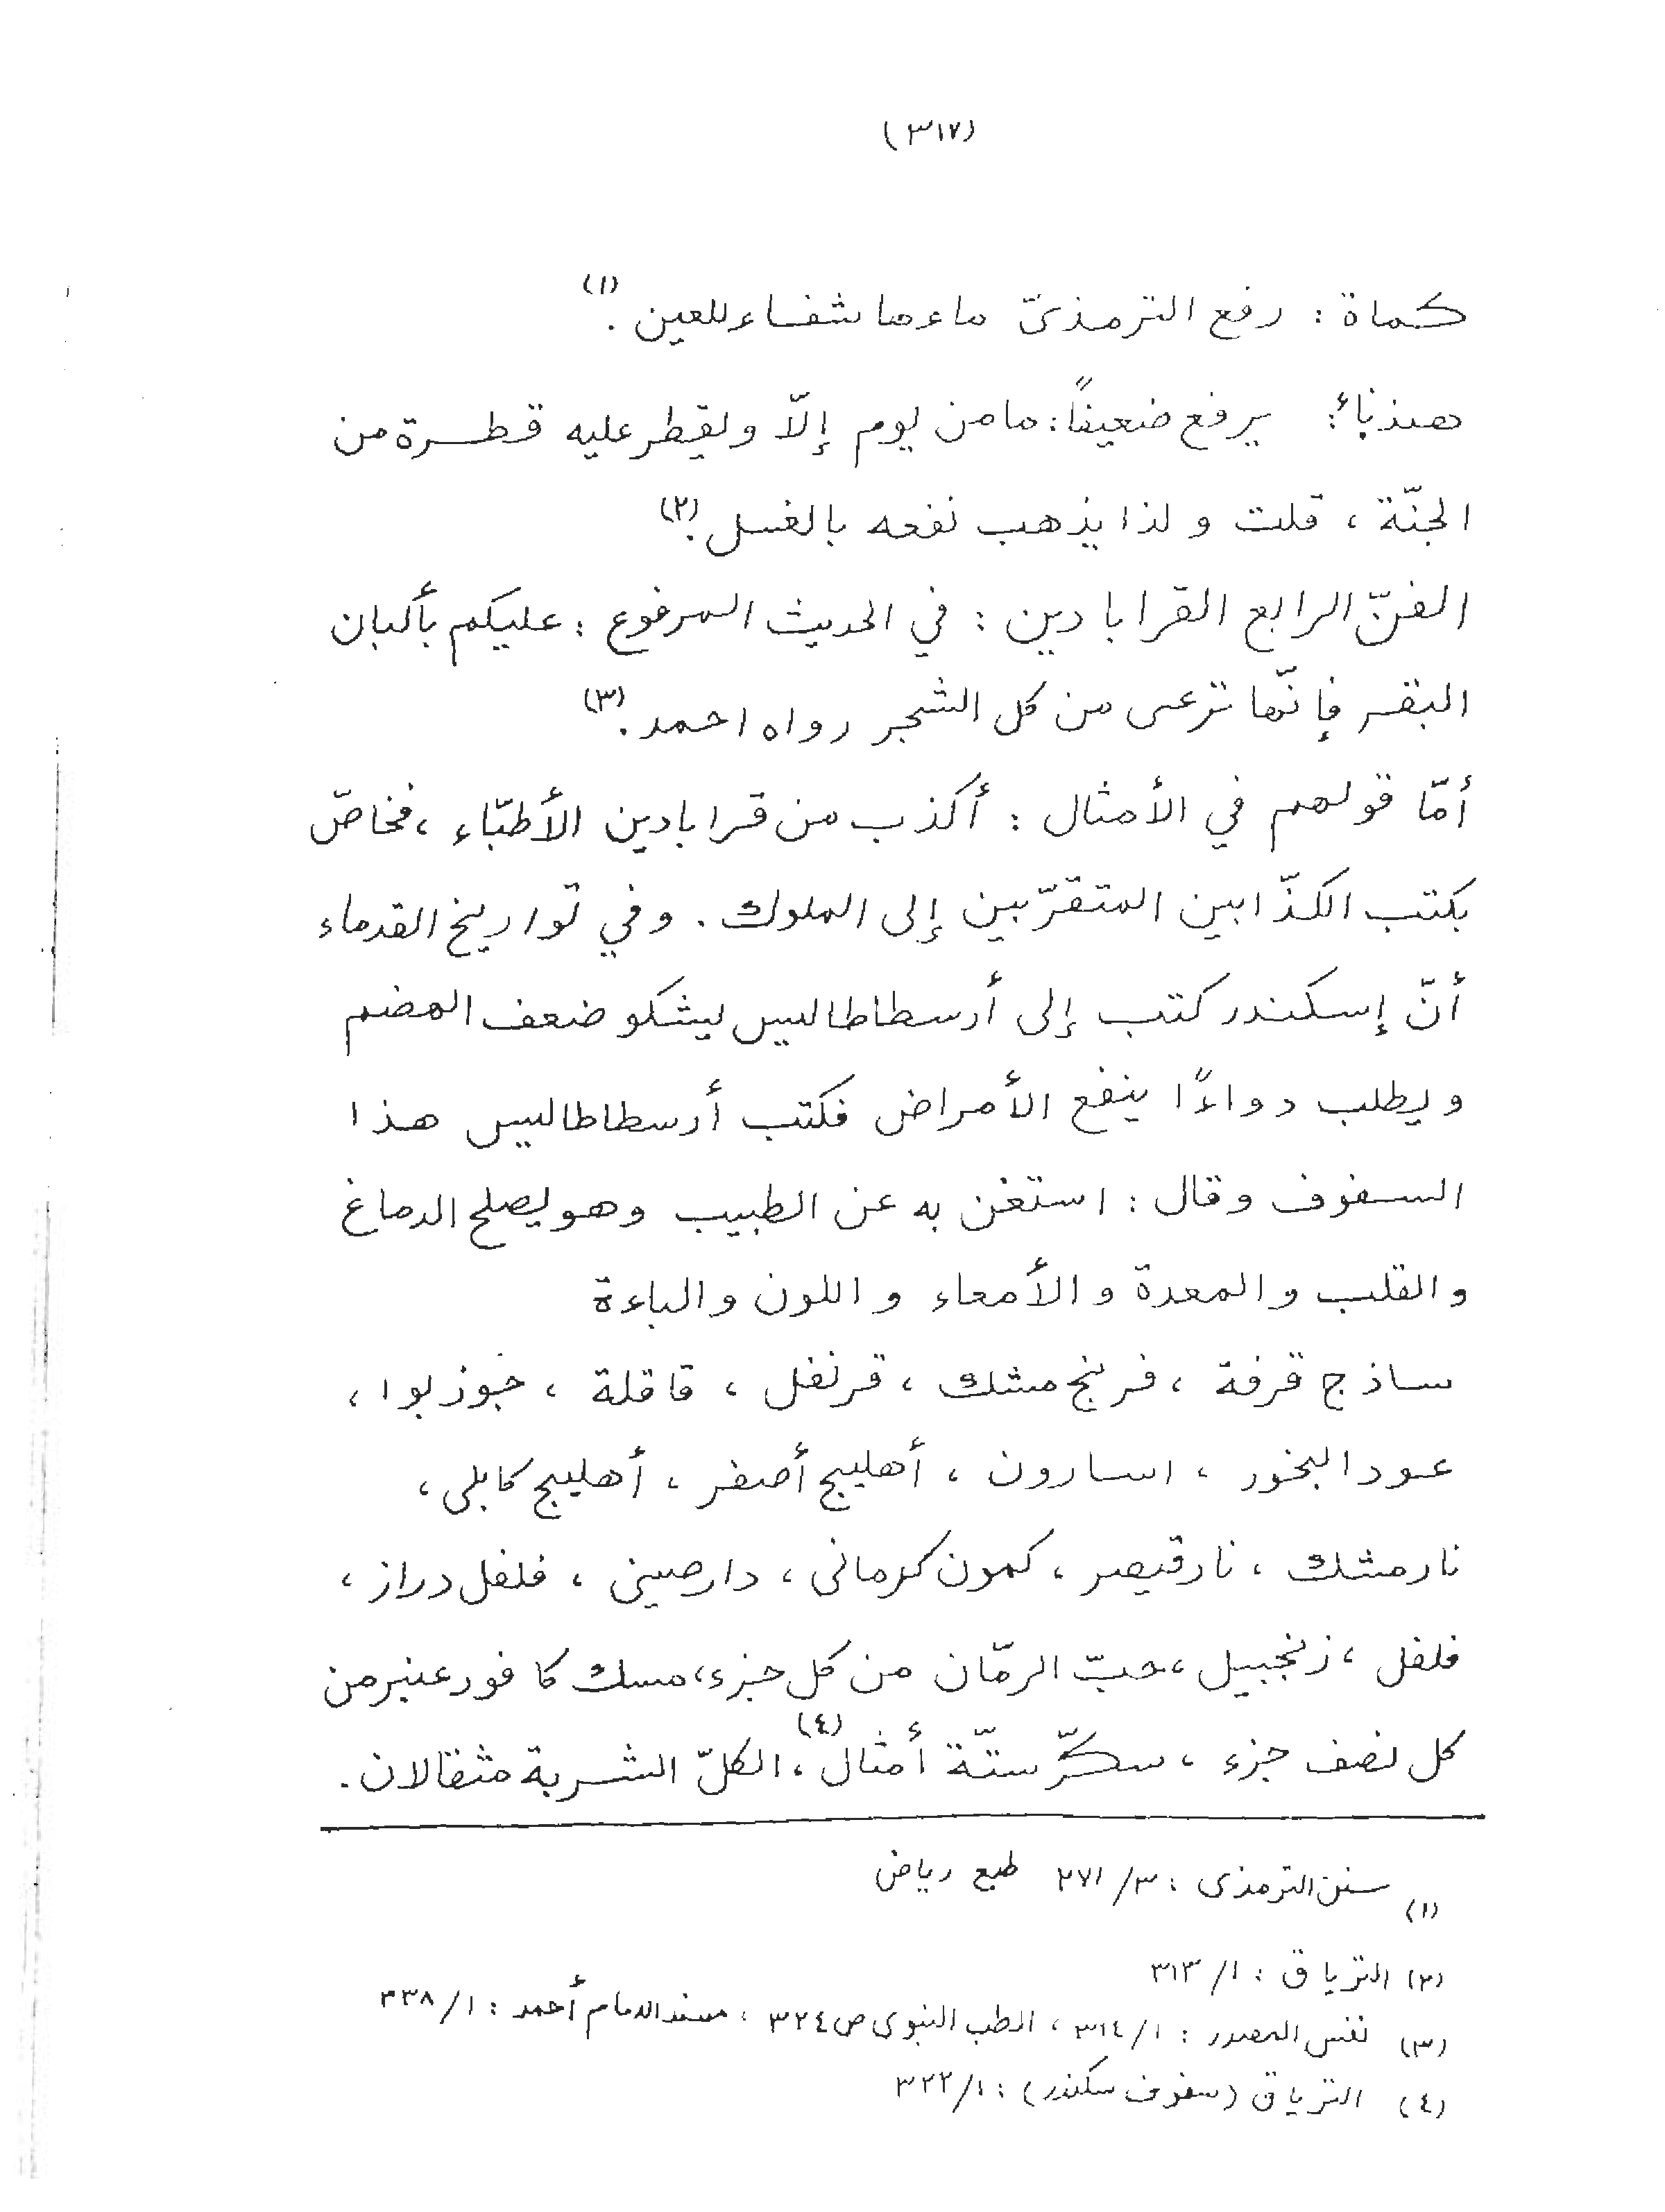 (٣١٧)
كماة : رفع الترمذىّ ماءها شفاء للعين .(١)
هنذباء: يرفع ضعيفاً: ما من يوم إلّا ويقطر عليه قطرة من
الجنّة ، قلت ولذا يذهب نفعه بالغسل .(٢)
الفنّ الرابع القرابادين : في الحديث المرفوع : عليكم بألبان
البقر فإنّها ترعى من كل الشجر رواه احمد .(٣)
أمّا قولهم في الأمثال : أكذب من قرابادين الأطبّاء ، فخاصّ
بكتب الكذّابين المتقرّبين إلى الملوك . وفي تواريخ القدماء
أنّ إسكندر كتب إلى أرسطاطاليس يشكو ضعف الهضم
ويطلب دواءً ا ينفع الأمراض فكتب أرسطاطاليس هذا
السفوف وقال : استغن به عن الطبيب وهو يصلح الدماغ
والقلب والمعدة والأمعاء واللون والباءة
ساذج قرفة ، فرنج مشك ، قرنفل ، قاقلة ، جوزبوا ،
عود البخور ، اسارون ، أهليج أصفر ، أهليج كابلى ،
نارمشك ، نارقيصر ، كمون كرمانى ، دارصينى ، فلفل دراز ،
فلفل ، زنجبيل ، حبّ الرمّان من كل جزء ، مسك كافور عنبر من
كل نصف جزء ، سكّر ستّة أمثال (٤)، الكلّ الشربة مثقالان .
(١) سنن الترمذى : ٣/ ٢٧١ طبع رياض
(٢) الترياق : ١/ ٣١٣
(٣) نفس المصدر : ١/ ٣١٤ ، الطب النبوى ص ٣٢٤ ، مسند الامام أحمد : ١/ ٣٣٨
(٤) الترياق (سفوف سكندر) : ١/ ٣٢٢